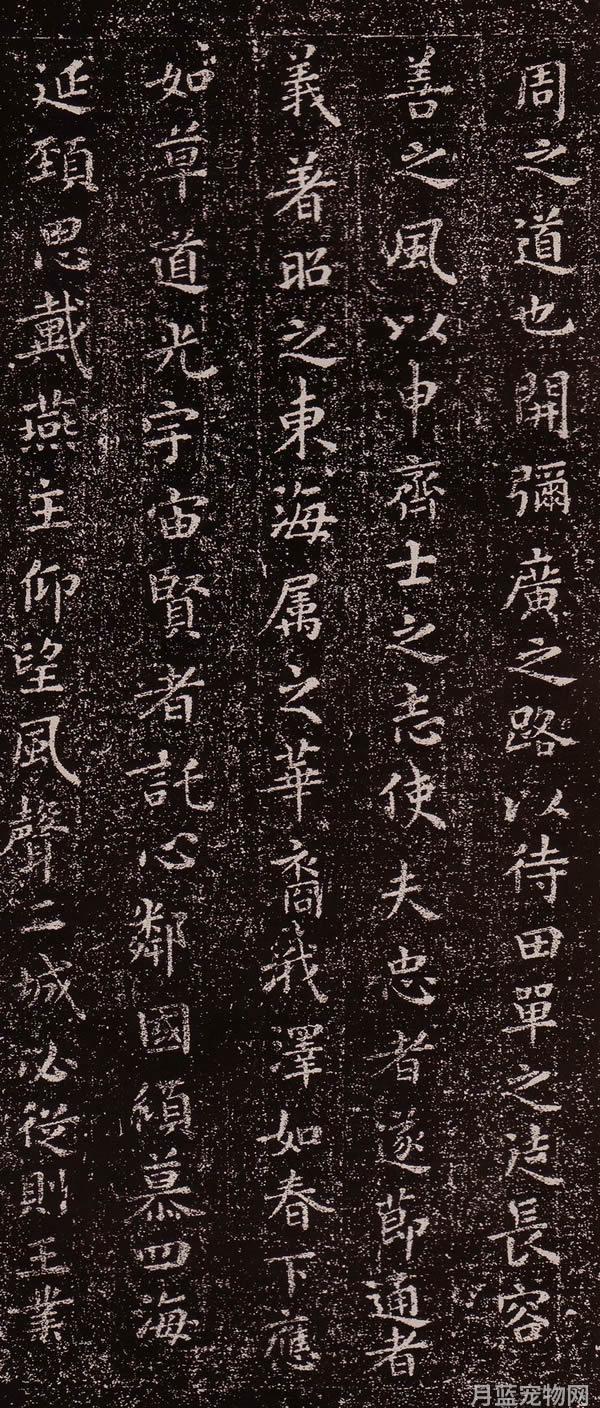 周之道也開彌廣之路以待田單之徒長容
善之風以申齊士之志使夫忠者遂節通者
義著昭之東海属之華裔我澤如春下應
如草道光宇宙賢者託心鄰國傾慕四海
延頸思戴燕主仰望風聲二城必從則王業
月蓝宠物网